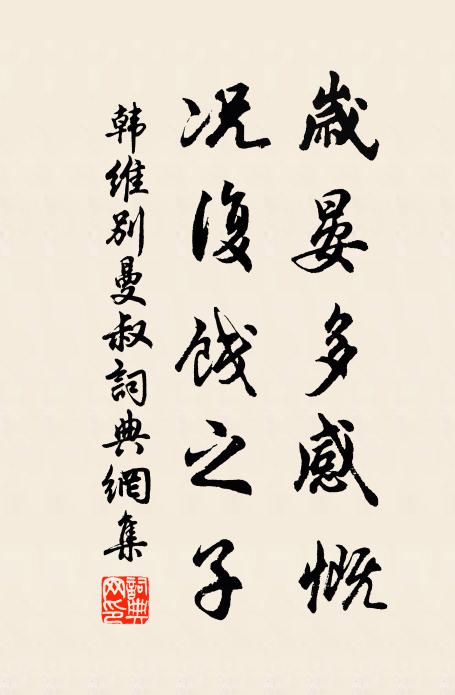 歲晏多感慨
况復餞之子
韩維别曼叔詞典網集
詞典网印